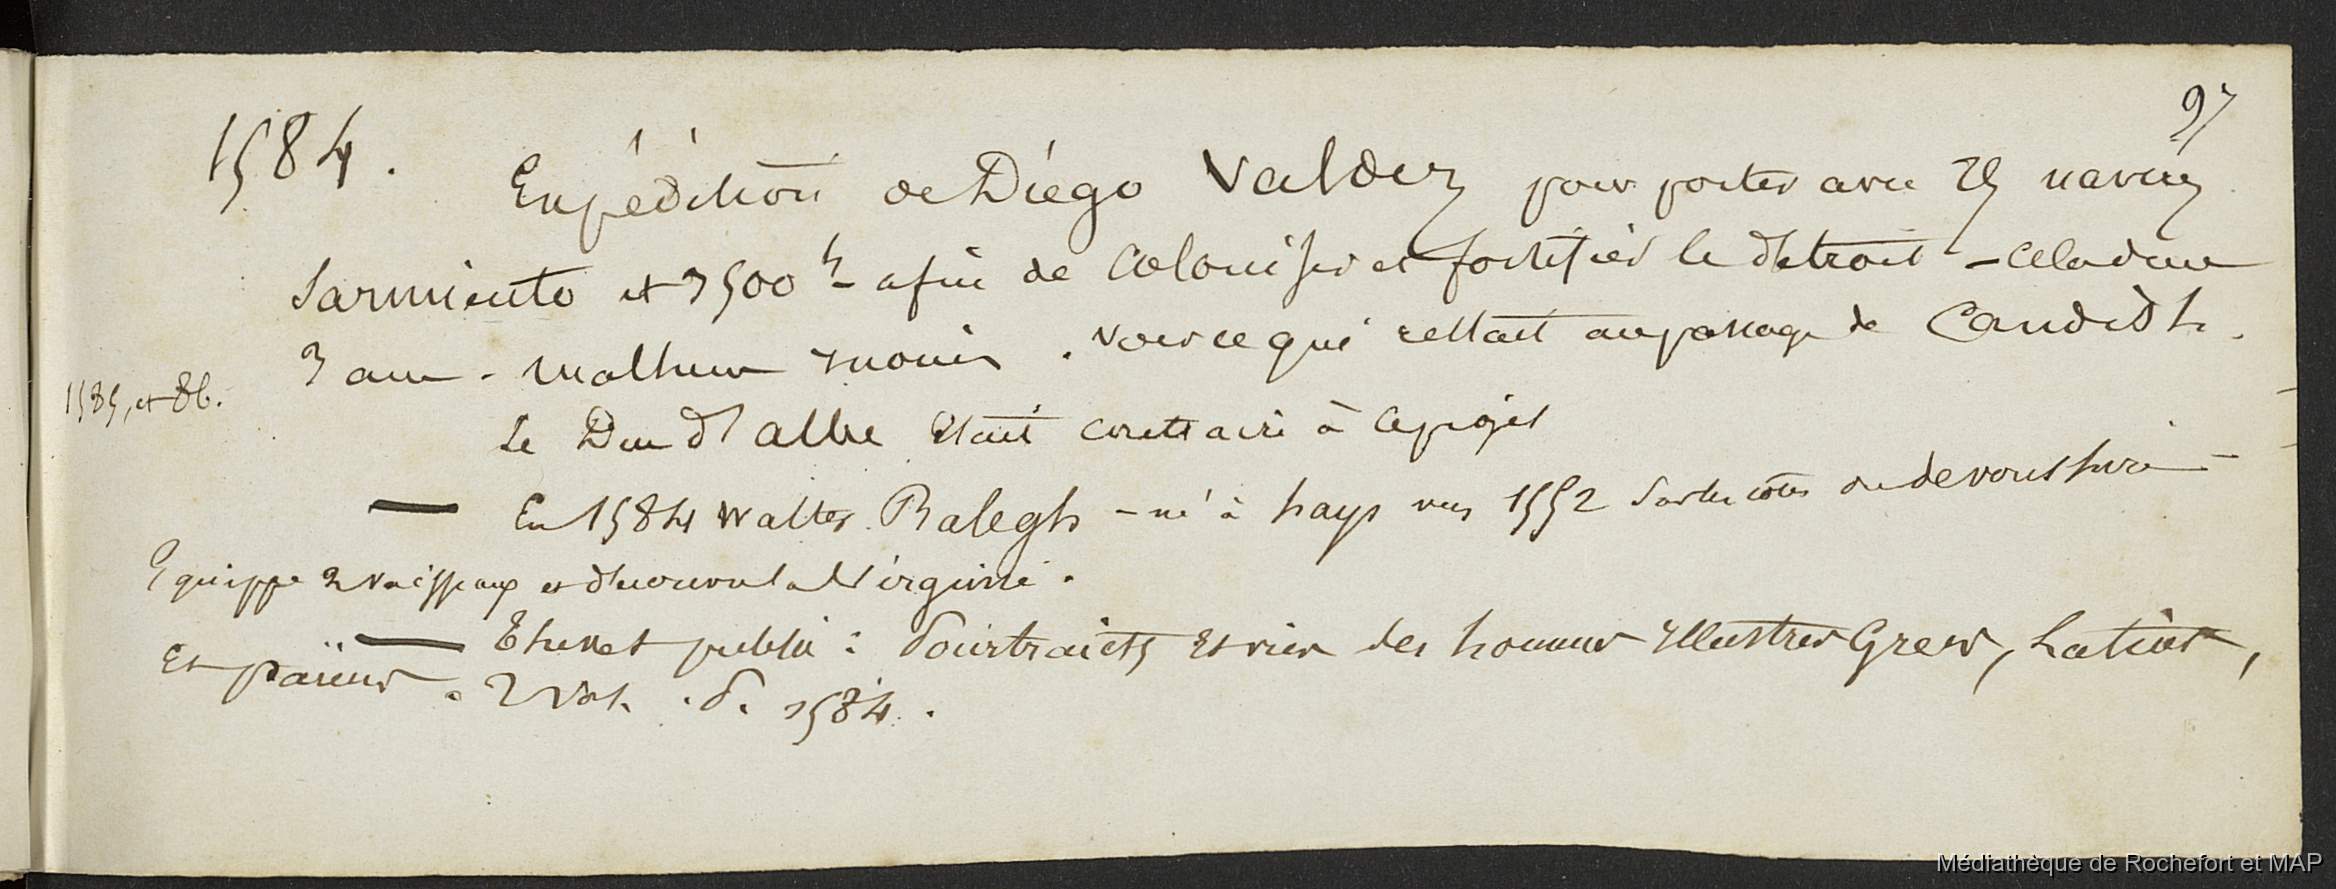 97
1584. Expédition de Diégo Valdez pour porter avec 25 navires
Sarmiento et 3500 h. afin de coloniser et fortifier le détroit - cela dure
3 ans. malheur inouis. voir ce qui restait au passage de Candidh.
1585, et 86.
Le Duc d'albe était contraire à ce projet
— En 1584 Walter Ralegh - né à hays vers 1552 sur les côtes du devonshire -
Equippe 2 vaisseaux et découvre la Virginie.
— Thevet publie : Pourtraicts et vies des hommes illustres Grecs, Latins,
et païens. 2 vol. . P. 1584.
Médiathèque de Rochefort et MAP